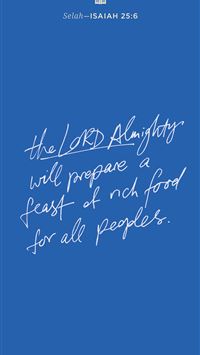 Selah—ISAIAH 25:6
the LORD Almighty
will prepare a
feast of rich food
for all peoples.